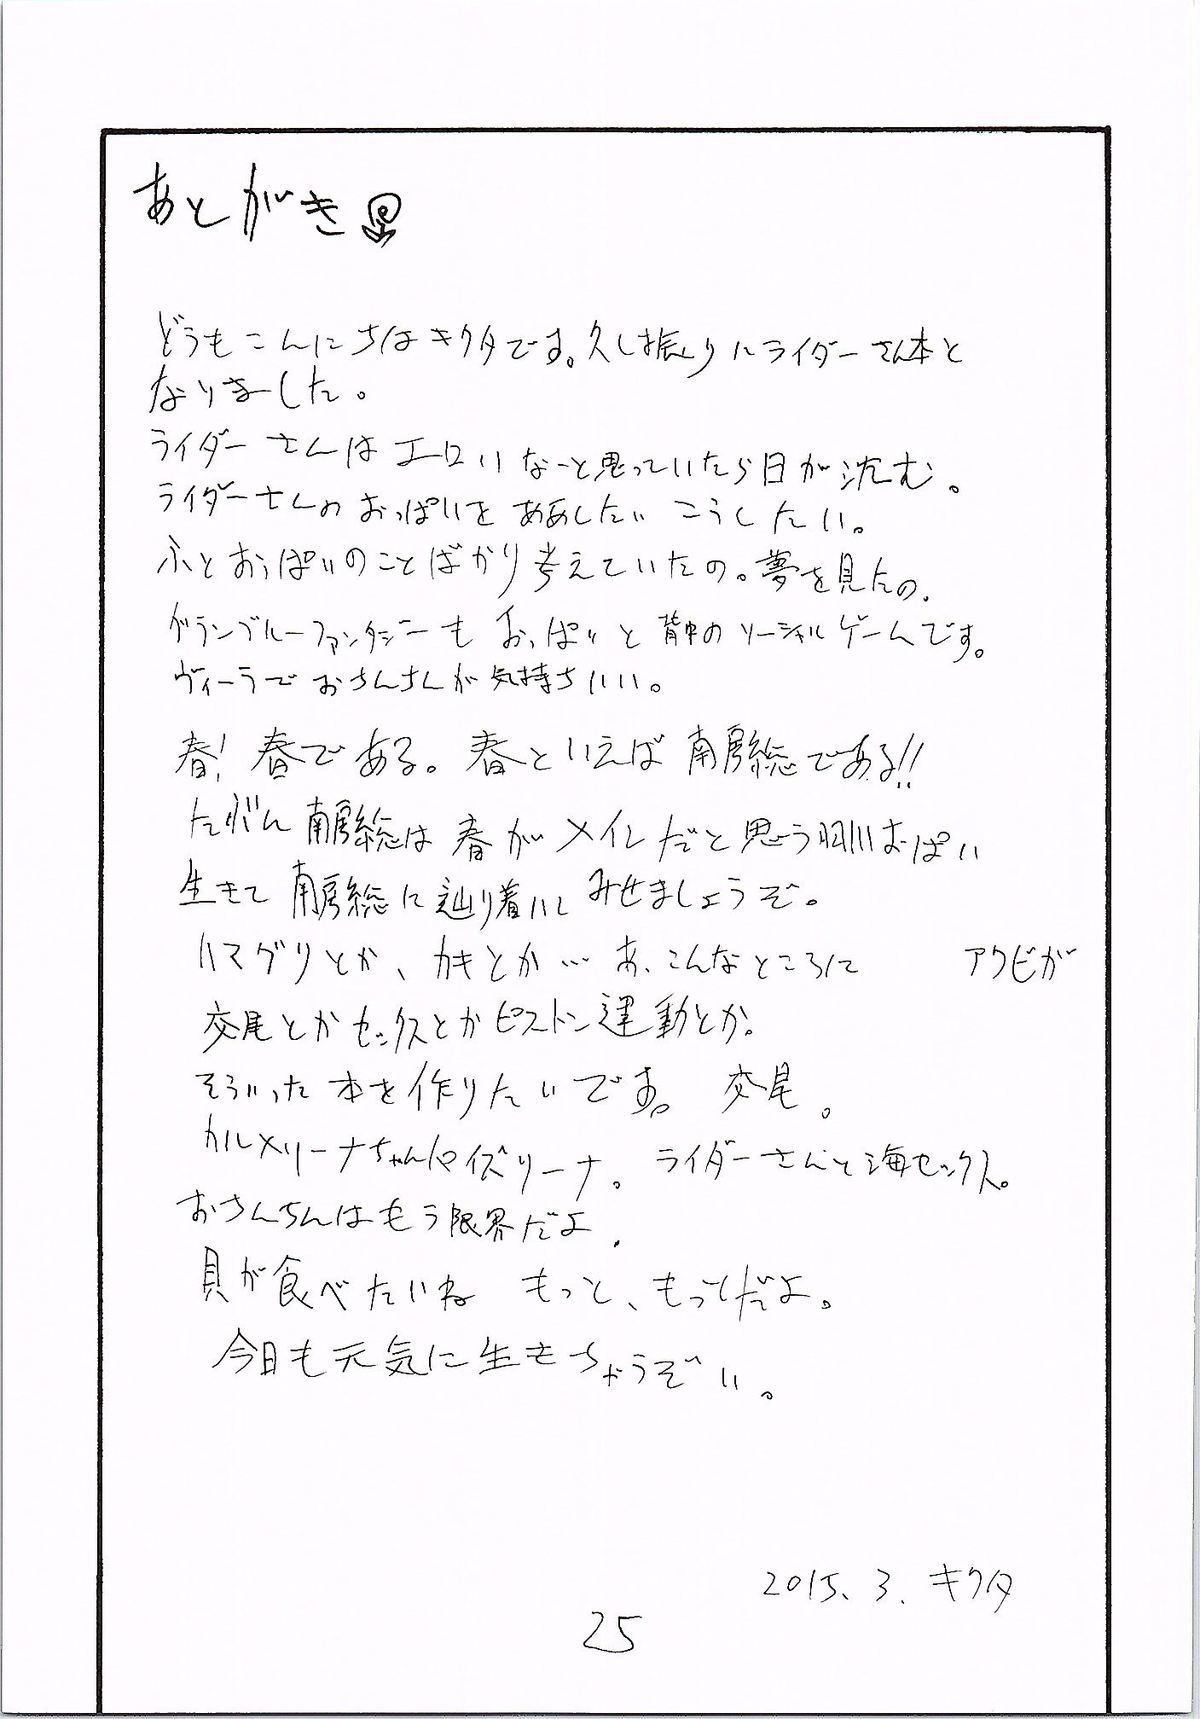 あとがき
どうもこんにちはキクタです。久し振りにライダーさん本と
なりました。
ライダーさんはエロいなーと思っていたら日が沈む。
ライダーさんのおっぱいをああしたいこうしたい。
ふとおっぱいのことばかり考えていたの。夢を見たの。
グランブルーファンタジーもおっぱいと背中のソーシャルゲームです。
ヴィーラでおちんちんが気持ちいい。
春!春である。春といえば南房総である!!
たぶん南房総は春がメインだと思う羽川おっぱい
生きて南房総に辿り着いてみせましょうぞ。
ハマグリとか、カキとか…あ、こんなところに アワビが
交尾とかセックスとかピストン運動とか。
そういった本を作りたいです。 交尾。
カルメリーナちゃんやイズリーナ。ライダーさんと海セックス。
おちんちんはもう限界だよ。
貝が食べたいね もっと、もっとだよ。
今日も元気に生きちゃうぞい。
2015.3.キクタ
25